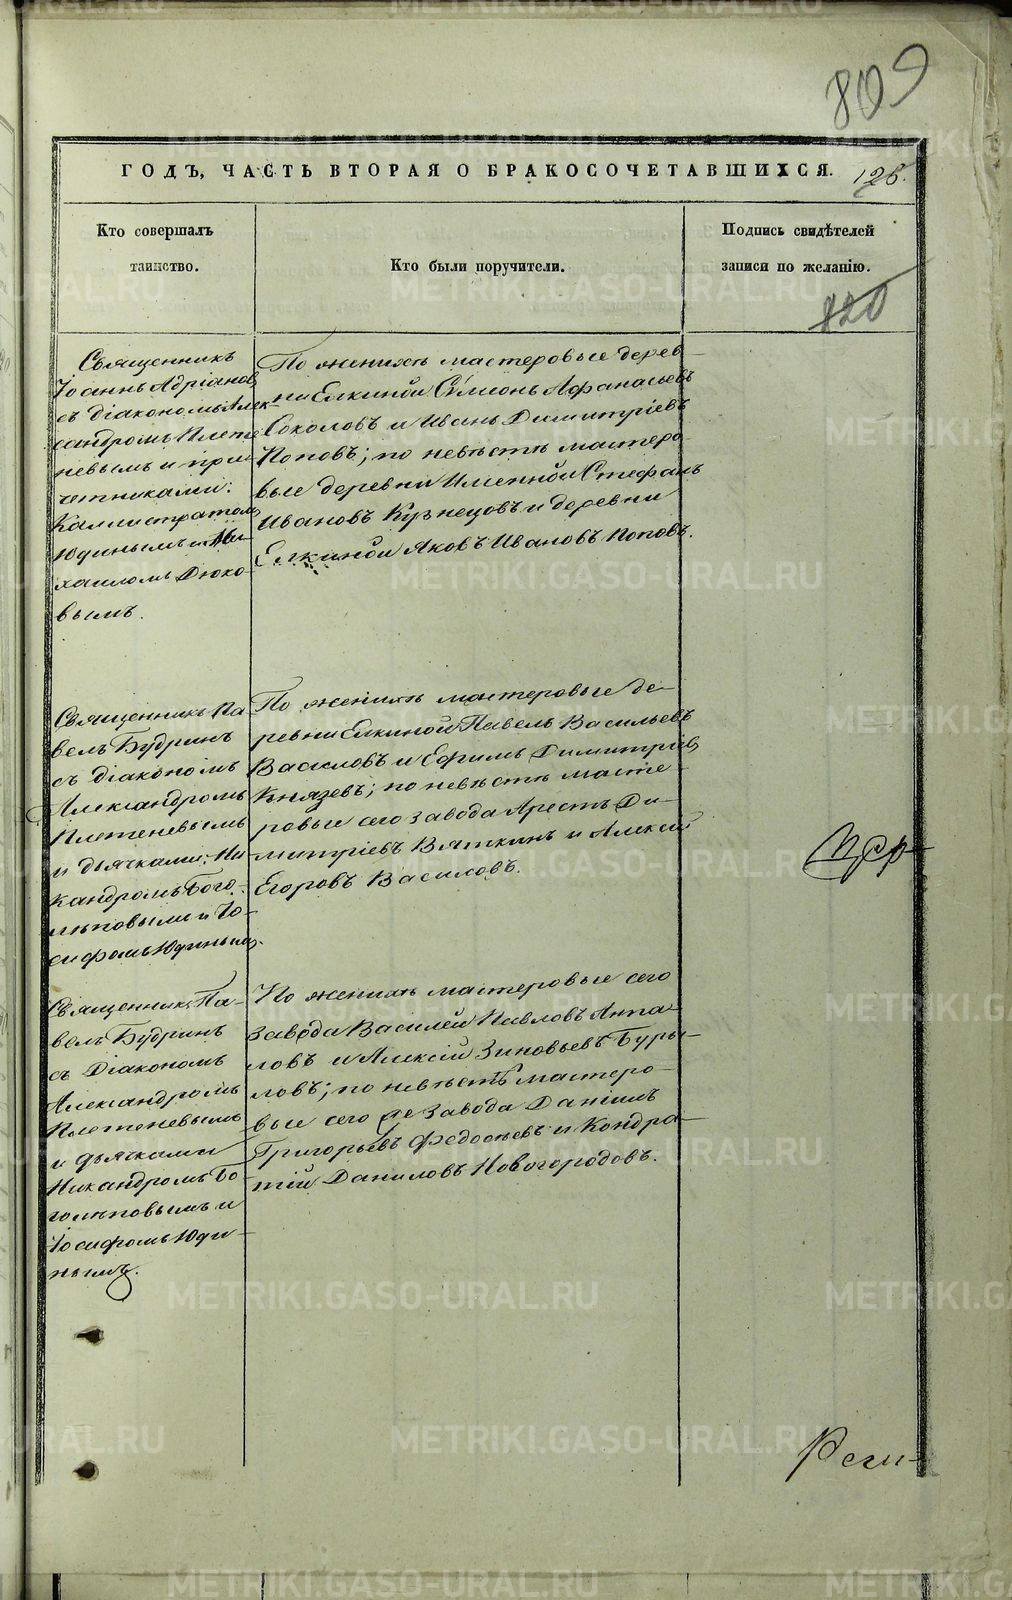 809
ГОДЪ, ЧАСТЬ ВТОРАЯ О БРАКОСОЧЕТАВШИХСЯ. 126.
Кто совершалъ
таинство.
Кто были поручители.
Подпись свидѣтелей
записи по желанію.
120
Священникъ
Іоаннъ Адріановъ
съ діакономъ Алек-
сандромъ Плете-
невымъ и при-
четниками:
Каллистратомъ
Юдинымъ и Ми-
хаиломъ Дюко-
вымъ.
По женихѣ мастеровые дерев-
ни Елкиной Сѵмеонъ Афанасьевъ
Соколовъ и Иванъ Димитріевъ
Поповъ; по невѣстѣ мастеро-
вые деревни Именной Стефанъ
Ивановъ Кузнецовъ и деревни
Елкиной Яковъ Ивановъ Поповъ.
Священникъ Па-
велъ Будринъ
съ діакономъ
Александромъ
Плетеневымъ
и дьячками: Ни-
кандромъ Бого-
лѣповымъ и Іо-
сифомъ Юдинымъ.
По женихѣ мастеровые де-
ревни Елкиной Павелъ Васильевъ
Василовъ и Ефимъ Димитріевъ
Князевъ; по невѣстѣ масте-
ровые сего завода Арестъ Ди-
митріевъ Вяткинъ и Алексѣй
Егоровъ Василовъ.
Священникъ Па-
велъ Будринъ
съ Діакономъ
Александромъ
Плетеневымъ
и дьячками
Никандромъ Бо-
голѣповымъ и
Іосифомъ Юди-
нымъ.
По женихѣ мастеровые сего
завода Василей Павловъ Анпа-
ловъ и Алексій Зиновьевъ Буры-
ловъ; по невѣстѣ мастеро-
вые сего же завода Даніилъ
Григорьевъ Федосѣевъ и Кондра-
тій Даниловъ Новогородовъ.
METRIKI.GASO-URAL.RU